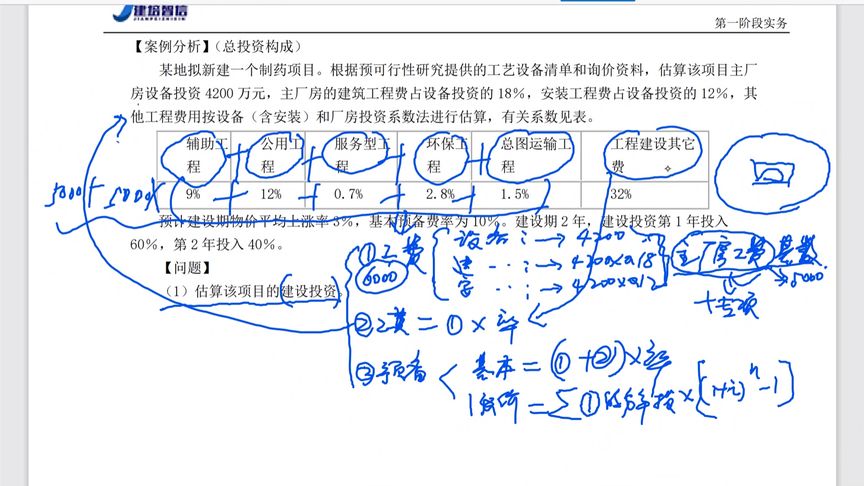 建培智信
JIANPEIZHIXIN
第一阶段实务
【案例分析】（总投资构成）
某地拟新建一个制药项目。根据预可行性研究提供的工艺设备清单和询价资料，估算该项目主厂
房设备投资 4200 万元，主厂房的建筑工程费占设备投资的 18%，安装工程费占设备投资的 12%，其
他工程费用按设备（含安装）和厂房投资系数法进行估算，有关系数见表。
辅助工程 公用工程 服务型工程 环保工程 总图运输工程 工程建设其它费
9% 12% 0.7% 2.8% 1.5% 32%
5000+5000×
预计建设期物价平均上涨率 3%，基本预备费率为 10%。建设期 2 年，建设投资第 1 年投入
60%，第 2 年投入 40%。
【问题】
（1）估算该项目的建设投资。
①工费 6000
设备：→4200
建：→4200×0.18
安：→4200×0.12
主厂房工费 基数
→5000
+专项
②工费=①×率
③预备
基本=(①+②)×率
=∑①的分年投×[(1+i)ⁿ-1]